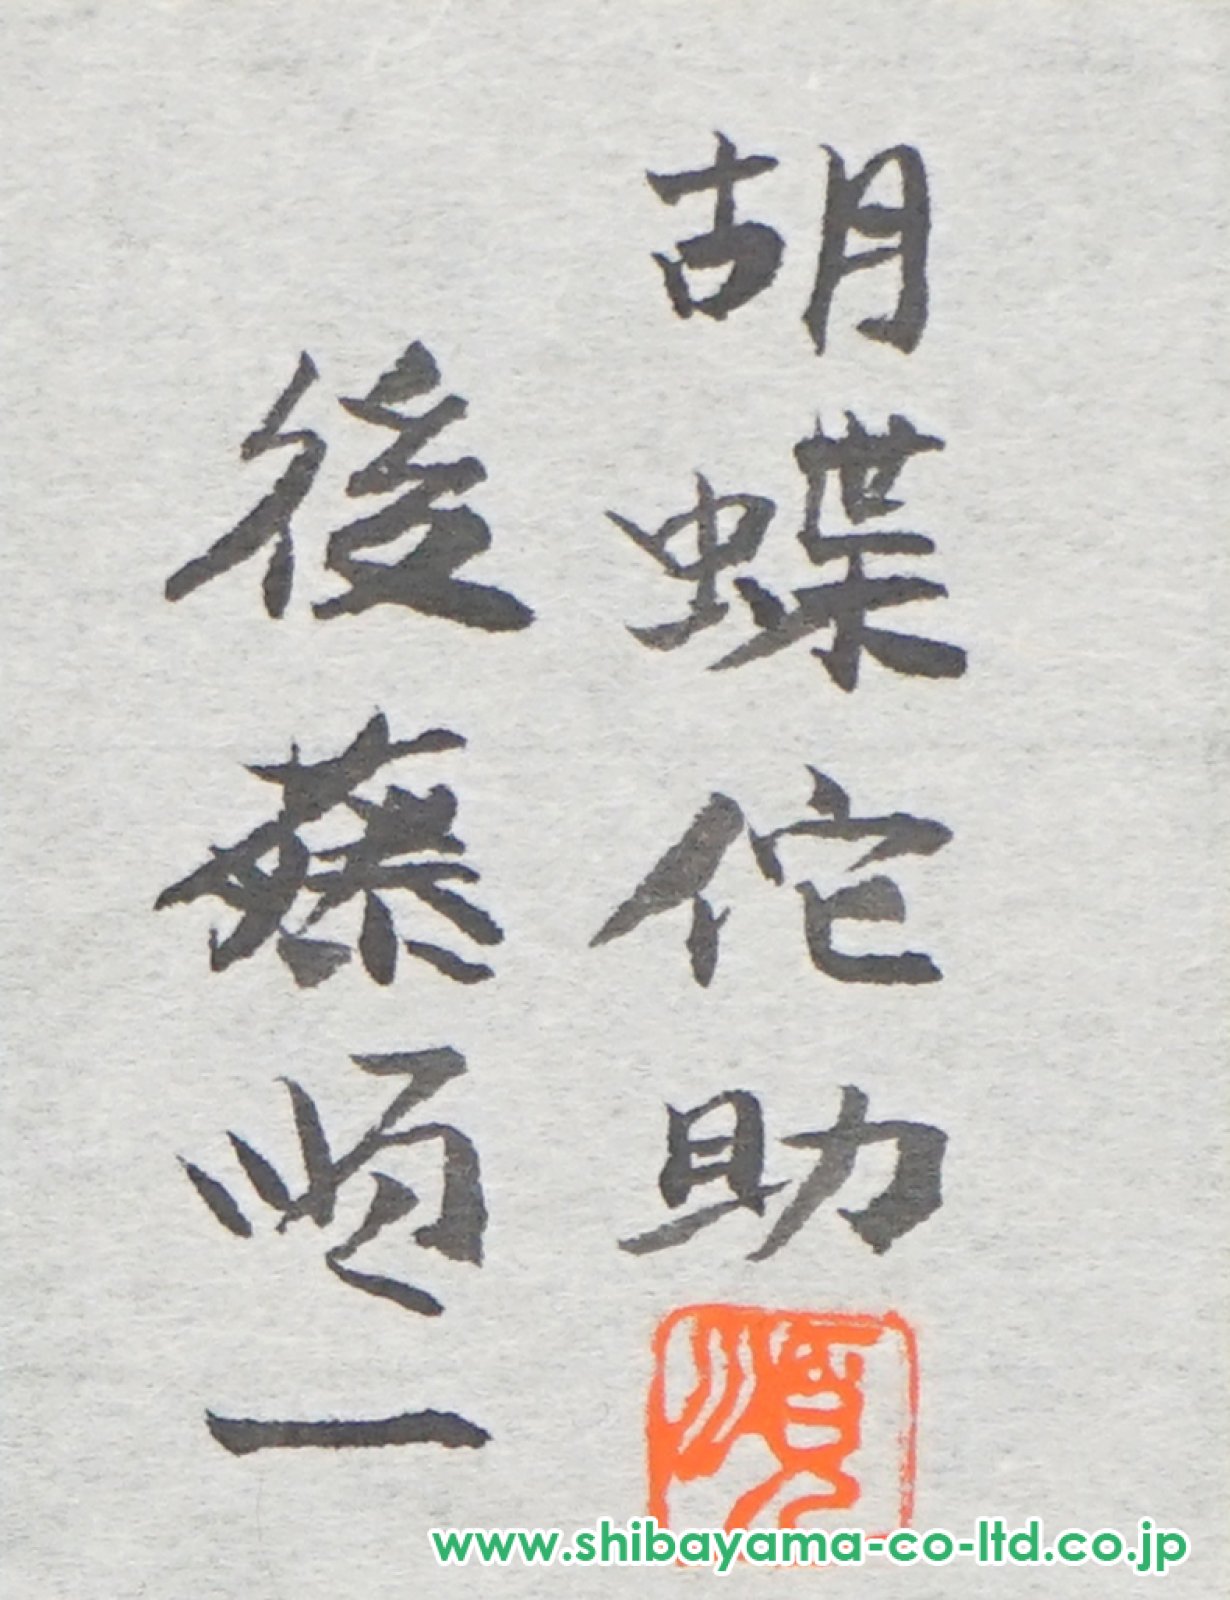 胡蝶佗助
後藤順一
順
www.shibayama-co-ltd.co.jp